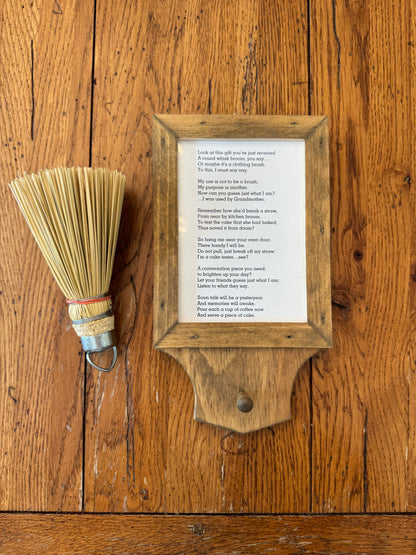 Look at this gift you've just received
A round whisk broom, you say...
Or maybe it's a clothing brush,
To this, I must say nay.
My use is not to be a brush;
My purpose is another.
Now can you guess just what I am?
...I was used by Grandmother.
Remember how she'd break a straw,
From near by kitchen broom,
To test the cake that she had baked;
Thus saved it from doom?
So hang me near your oven door,
There handy I will be.
Do not pull, just break off my straw;
I'm a cake tester...see?
A conversation piece you need;
to brighten up your day?
Let your friends guess just what I am;
Listen to what they say.
Soon talk will be a yesteryear
And memories will awake.
Pour each a cup of coffee now
And serve a piece of cake.